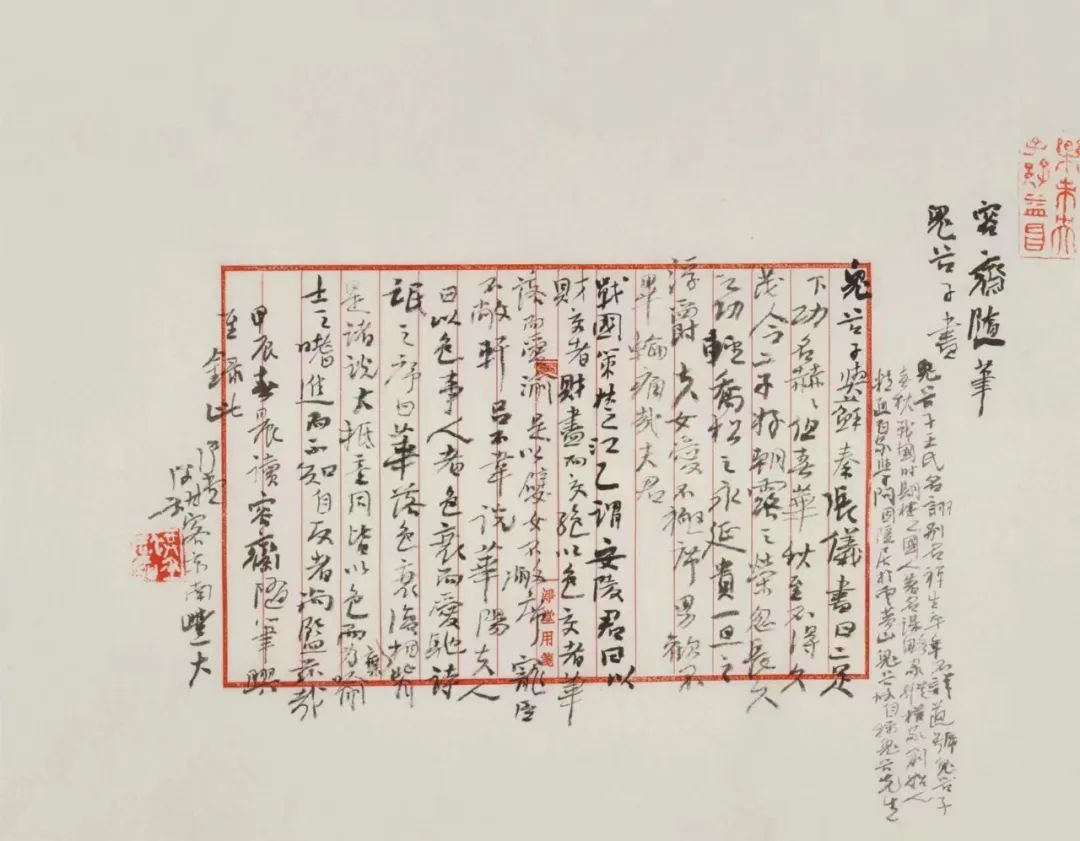 容齋隨筆
鬼谷子書
鬼谷子王氏名詡别名禅生卒年不詳道號鬼谷子
春秋戰國時期衛國人著名謀略家縱横家创始人
精通百家學問因隱居於雲夢山鬼谷故自稱鬼谷先生
鬼谷子與蘇秦張儀書曰二足
下功名赫〻但春華秋至不得久
茂今二子好朝露之榮忽長久
之功輕喬松之永延貴一旦之
浮爵夫女愛不極席男歡不
畢輪痛哉夫君
戰國策楚江乙謂安陵君曰以
財交者財盡而交絶以色交者華
落而愛渝是以嬖女不敝席寵臣
不敝軒呂不韋說華陽夫人
曰以色事人者色衰而愛弛詩
氓之序曰華落色衰復相背
棄
是諸說大抵意同皆以色而為喻
士之嗜進而不知自反者尚鑒茲哉
甲辰春晨讀容齋隨筆興
至錄此
客於南豐一大
淨堂用箋